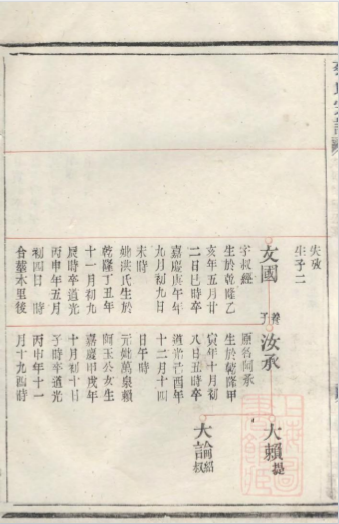 失攷
生子二
文國
字叔經
生於乾隆乙
亥年五月廿
二日巳時卒
嘉慶庚午年
九月初九日
未時
妣洪氏生於
乾隆丁丑年
十一月初九
辰時卒道光
丙申年五月
初四日 時
合墓木里後
養子
汝承
原名向承
生於乾隆甲
寅年十月初
八日丑時卒
道光己酉年
十二月十四
日午時
元妣萬泉賴
向玉公女生
嘉慶甲戌年
十月初十日
子時卒道光
丙申年十一
月十九酉時
大賴
大論